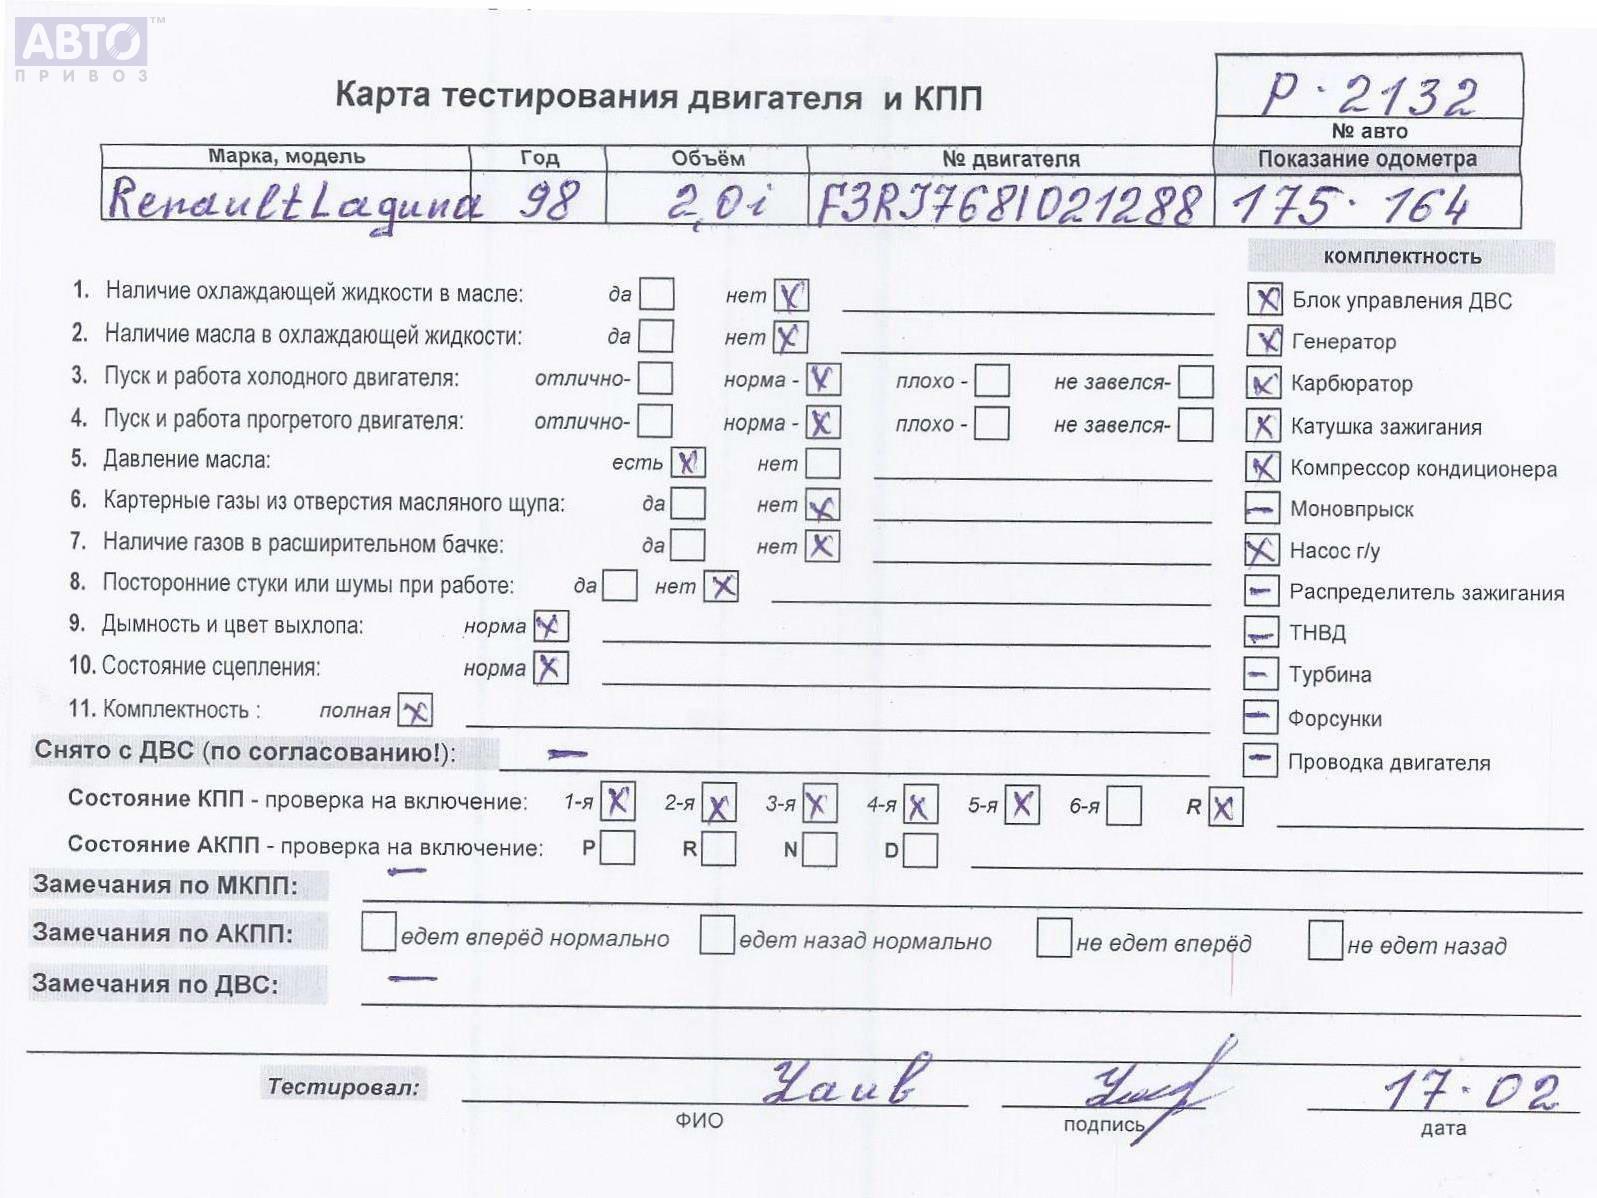 АВТО™
ПРИВОЗ
Карта тестирования двигателя и КПП
Р·2132
№ авто
Марка, модель Год Объём № двигателя Показание одометра
Renault Laguna 98 2,0i F3RJ768I021288 175·164
комплектность
1. Наличие охлаждающей жидкости в масле: да нет X
X Блок управления ДВС
2. Наличие масла в охлаждающей жидкости: да нет X
X Генератор
3. Пуск и работа холодного двигателя: отлично- норма - X плохо - не завелся-
X Карбюратор
4. Пуск и работа прогретого двигателя: отлично- норма - X плохо - не завелся-
X Катушка зажигания
5. Давление масла: есть X нет
X Компрессор кондиционера
6. Картерные газы из отверстия масляного щупа: да нет X
— Моновпрыск
7. Наличие газов в расширительном бачке: да нет X
X Насос г/у
8. Посторонние стуки или шумы при работе: да нет X
— Распределитель зажигания
9. Дымность и цвет выхлопа: норма X
— ТНВД
10. Состояние сцепления: норма X
— Турбина
11. Комплектность : полная X
— Форсунки
Снято с ДВС (по согласованию!): —
— Проводка двигателя
Состояние КПП - проверка на включение: 1-я X 2-я X 3-я X 4-я X 5-я X 6-я R X
Состояние АКПП - проверка на включение: P R N D
Замечания по МКПП: —
Замечания по АКПП: едет вперёд нормально едет назад нормально не едет вперёд не едет назад
Замечания по ДВС: —
Тестировал: 17·02
ФИО подпись дата